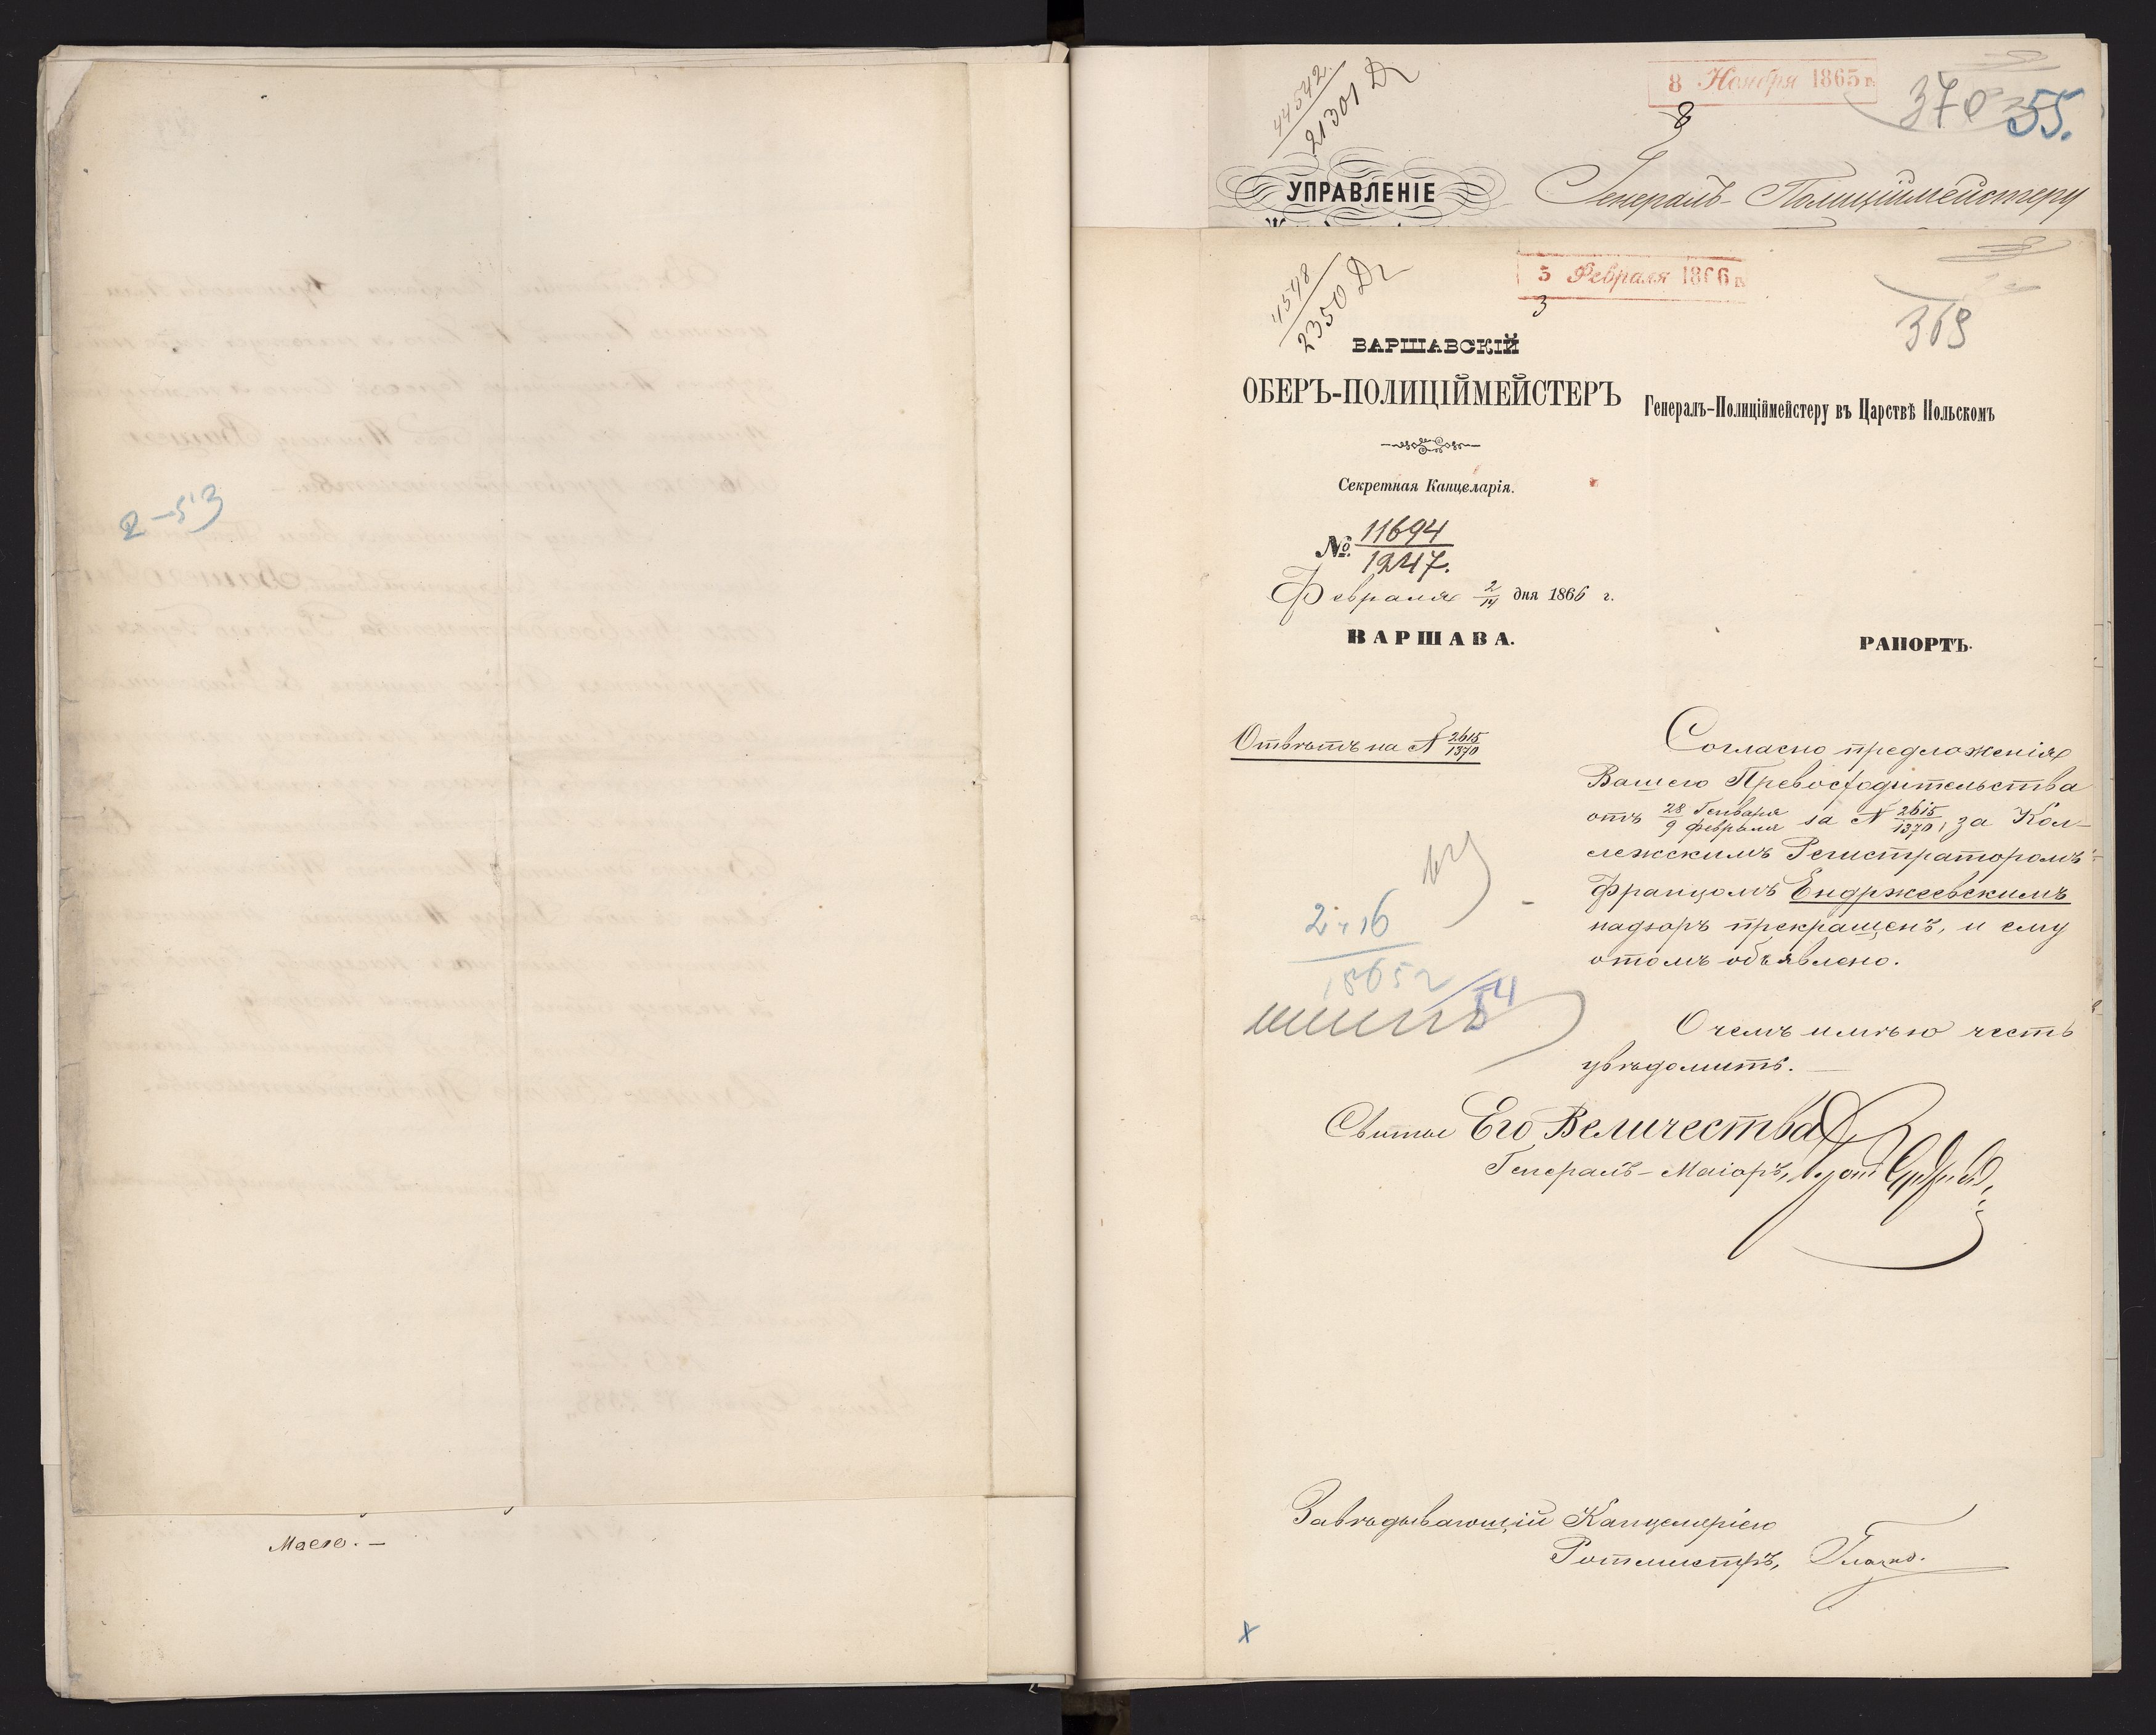 2-53
Маего. —
44542
21301 Дг
8 Ноября 1865 г.
8
370
55.
УПРАВЛЕНІЕ
Генералъ-Полиціймейстеру
4548
2350 Дг
3 Февраля 1866 г.
3
369
ВАРШАВСКІЙ
ОБЕРЪ-ПОЛИЦІЙМЕЙСТЕРЪ
Генералъ-Полиціймейстеру въ Царствѣ Польскомъ
Секретная Канцелярія.
№ 11694
1247.
Февраля 2/14 дня 1866 г.
ВАРШАВА.
РАПОРТЪ.
Отвѣтъ на № 2615/1370
Согласно предложенія
Вашего Превосходительства
отъ 28 Генваря / 9 Февраля за № 2615/1370, за Кол-
лежскимъ Регистраторомъ
Францомъ Ендржеевскимъ
надзоръ прекращенъ, и ему
отомъ объявлено.
2 ч 16
1865 г
54
О чемъ имѣю честь
увѣдомить. —
Свиты Его Величества
Генералъ-Маіоръ,
Завѣдывающій Канцеляріею
Ротмистръ,
x